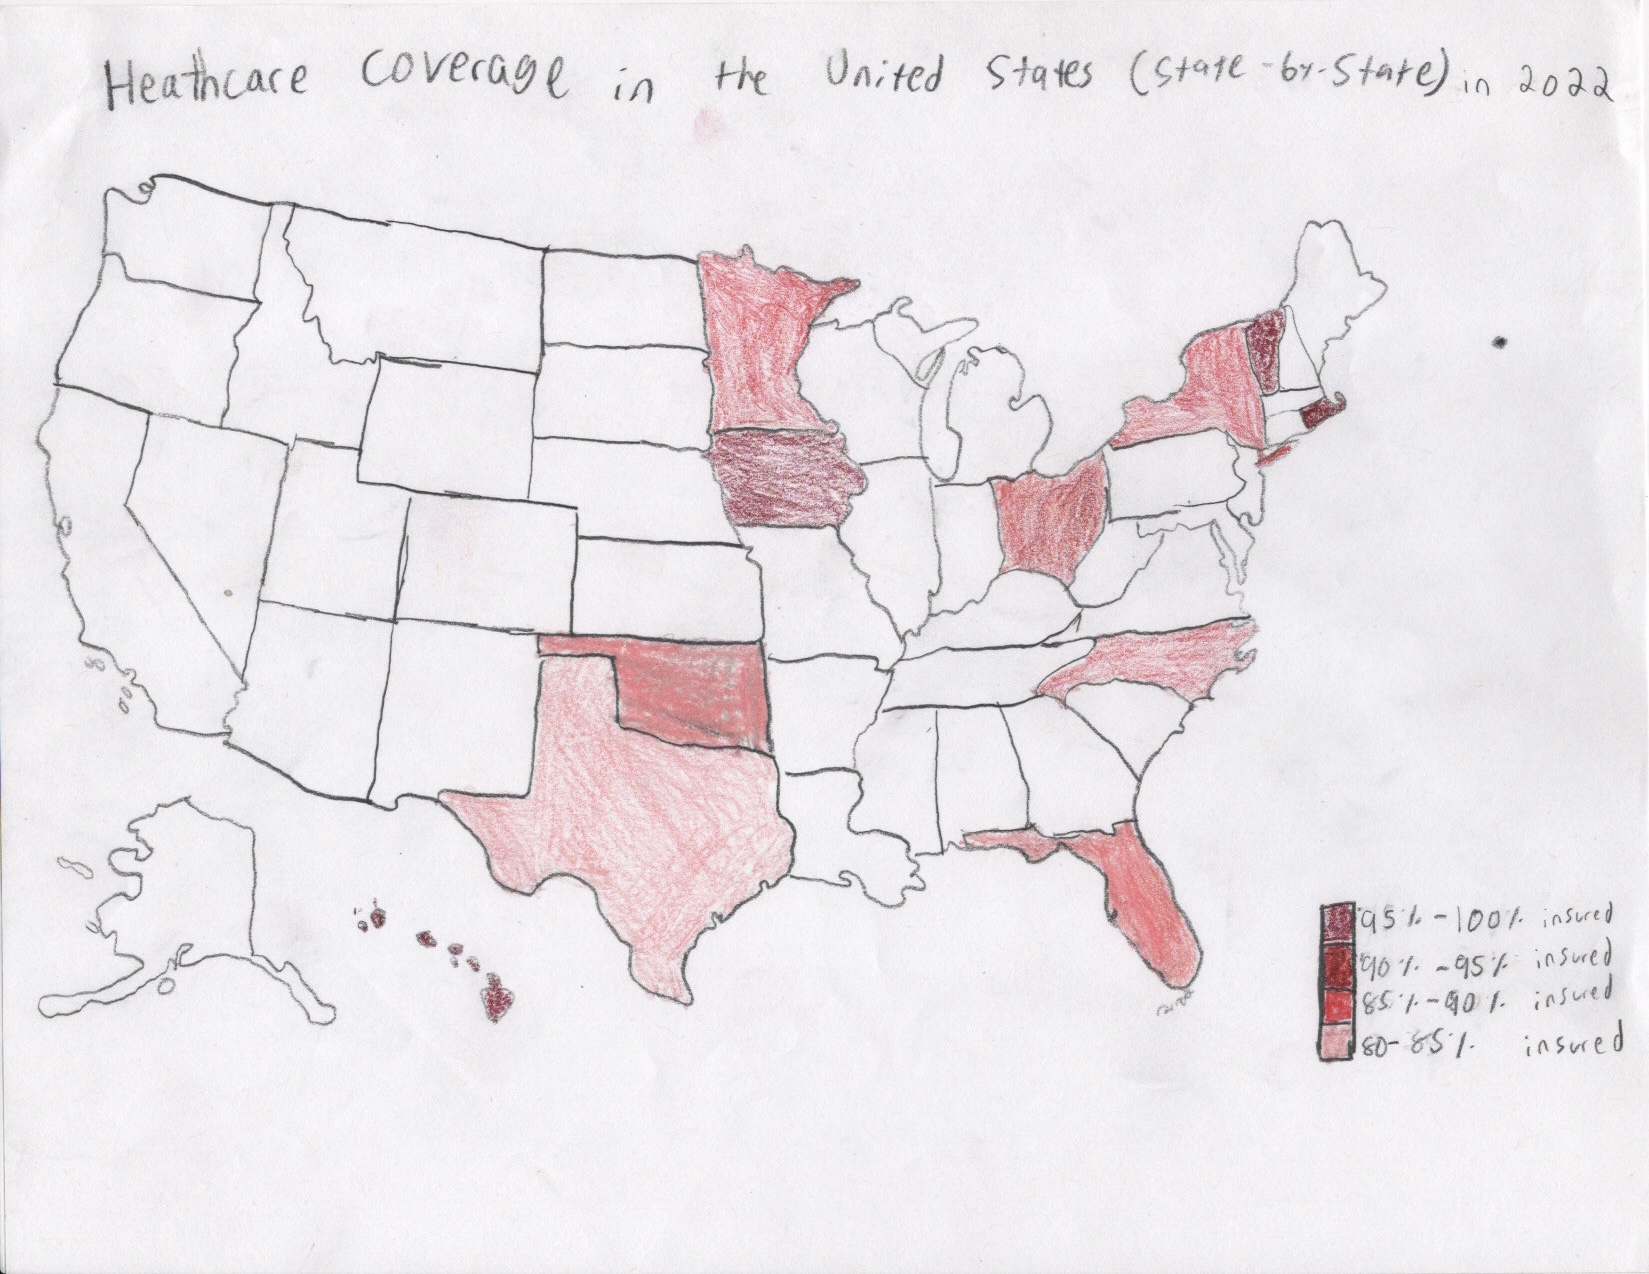 Heathcare Coverage in the United States (State-by-State) in 2022
95%-100% insured
90%-95% insured
85%-90% insured
80-85% insured